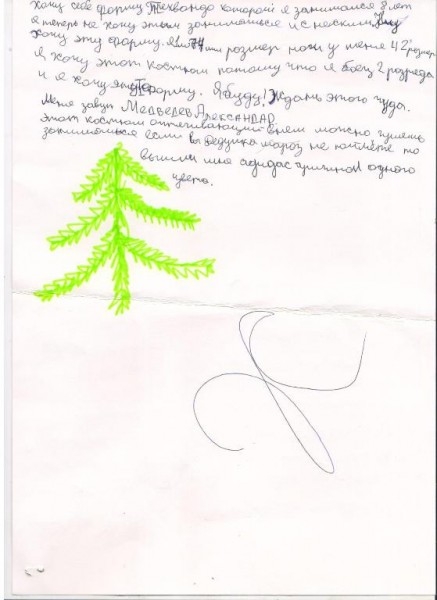 хочу себе форму Тхеквондо которой я занимался 8 лет
а теперь не хочу этим заниматься и с
хочу эту форму. размер ноги у меня 42 размер
я хочу этот костюм потому что я боец 2 розреда
и я хочу эту форму. Я буду! Ждать этого чуда.
Меня завут Медведев Александар
этот костюм в нём можно гулять
заниматься если вы дедушка мороз не поймёте то
вышли мне адидас одного
цвета.